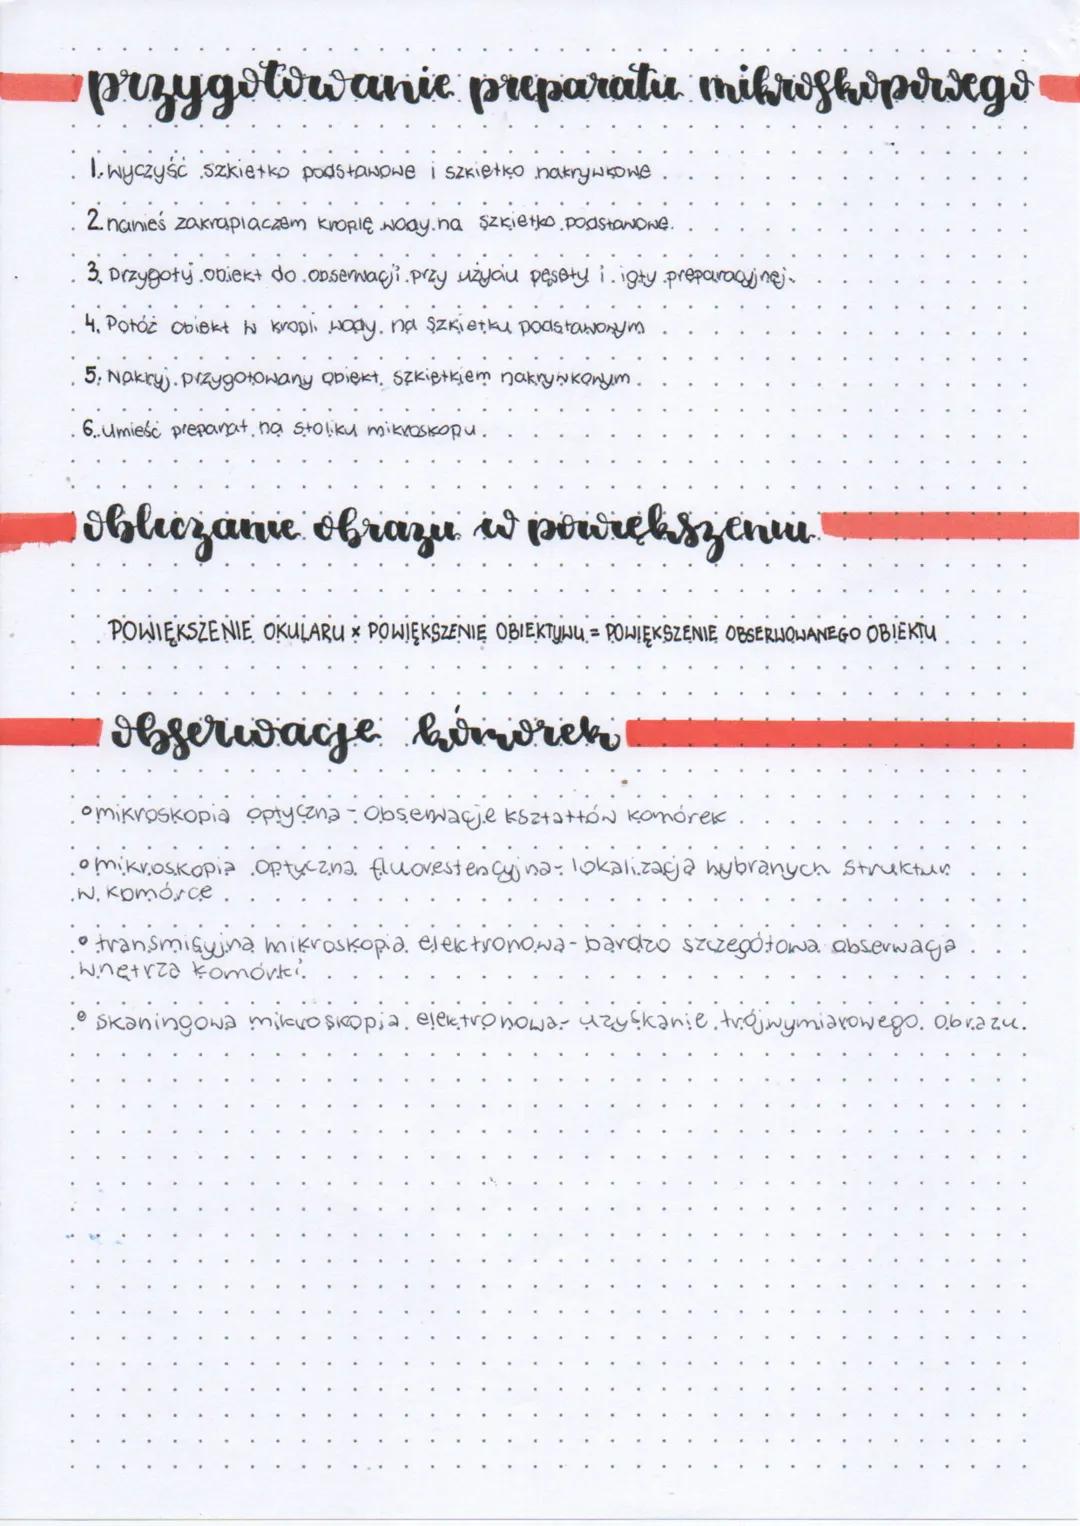 przygotowanie preparatu mikroskopowego
1. wyczyść szkiełko podstawowe i szkiełko nakrywkowe
2. nanieś zakraplaczem kroplę wody na szkiełko podstawowe.
3. Przygotuj obiekt do obserwacji przy użyciu pęsety i igły preparacyjnej.
4. Połóż obiekt w kropli wody na szkiełku podstawowym
5. Nakryj przygotowany obiekt szkiełkiem nakrywkowym.
6. Umieść preparat na stoliku mikroskopu.
obliczanie obrazu w powiększeniu
POWIĘKSZENIE OKULARU × POWIĘKSZENIE OBIEKTYWU = POWIĘKSZENIE OBSERWOWANEGO OBIEKTU
obserwacje komórek
• mikroskopia optyczna - obserwacje kształtów komórek
• mikroskopia optyczna fluorestencyjna - lokalizacja wybranych struktur
w komórce
• transmisyjna mikroskopia elektronowa - bardzo szczegółowa obserwacja
wnętrza komórki.
• skaningowa mikroskopia elektronowa - uzyskanie trójwymiarowego obrazu.